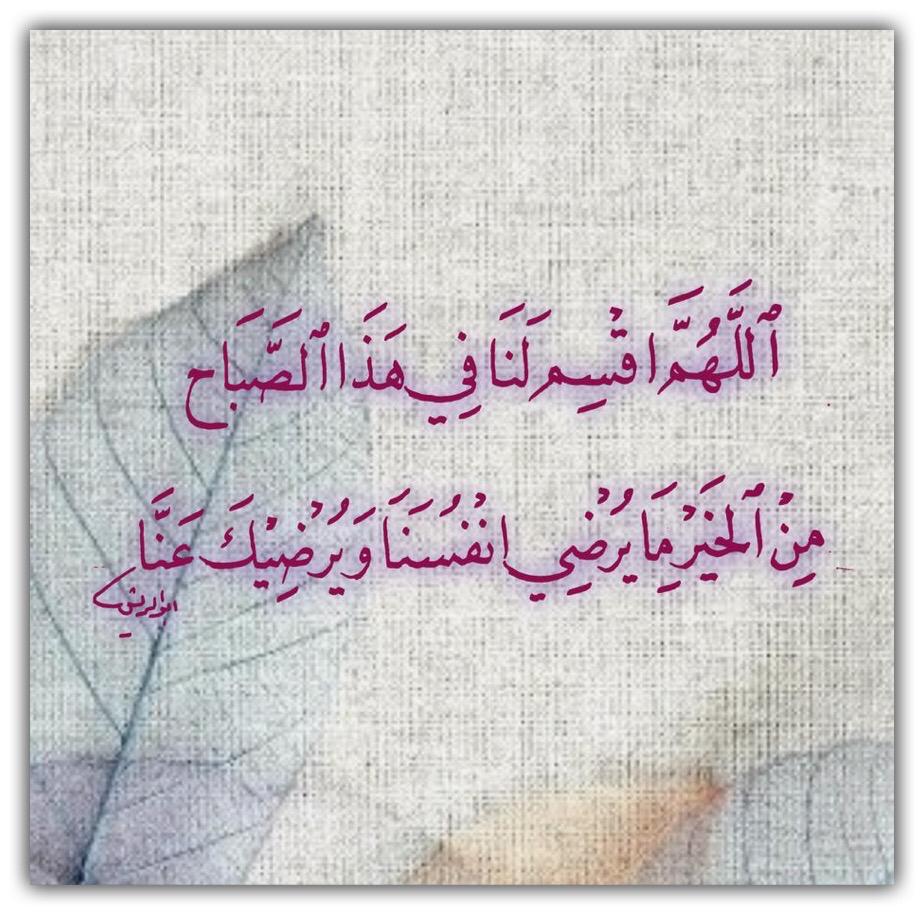 ٱللَّهُمَّ اقْسِم لَنَا فِي هَذَا ٱلصَّبَاح
مِنْ ٱلخَيْرِ مَا يُرْضِي انْفُسَنَا وَيُرْضِيْكَ عَنَّا